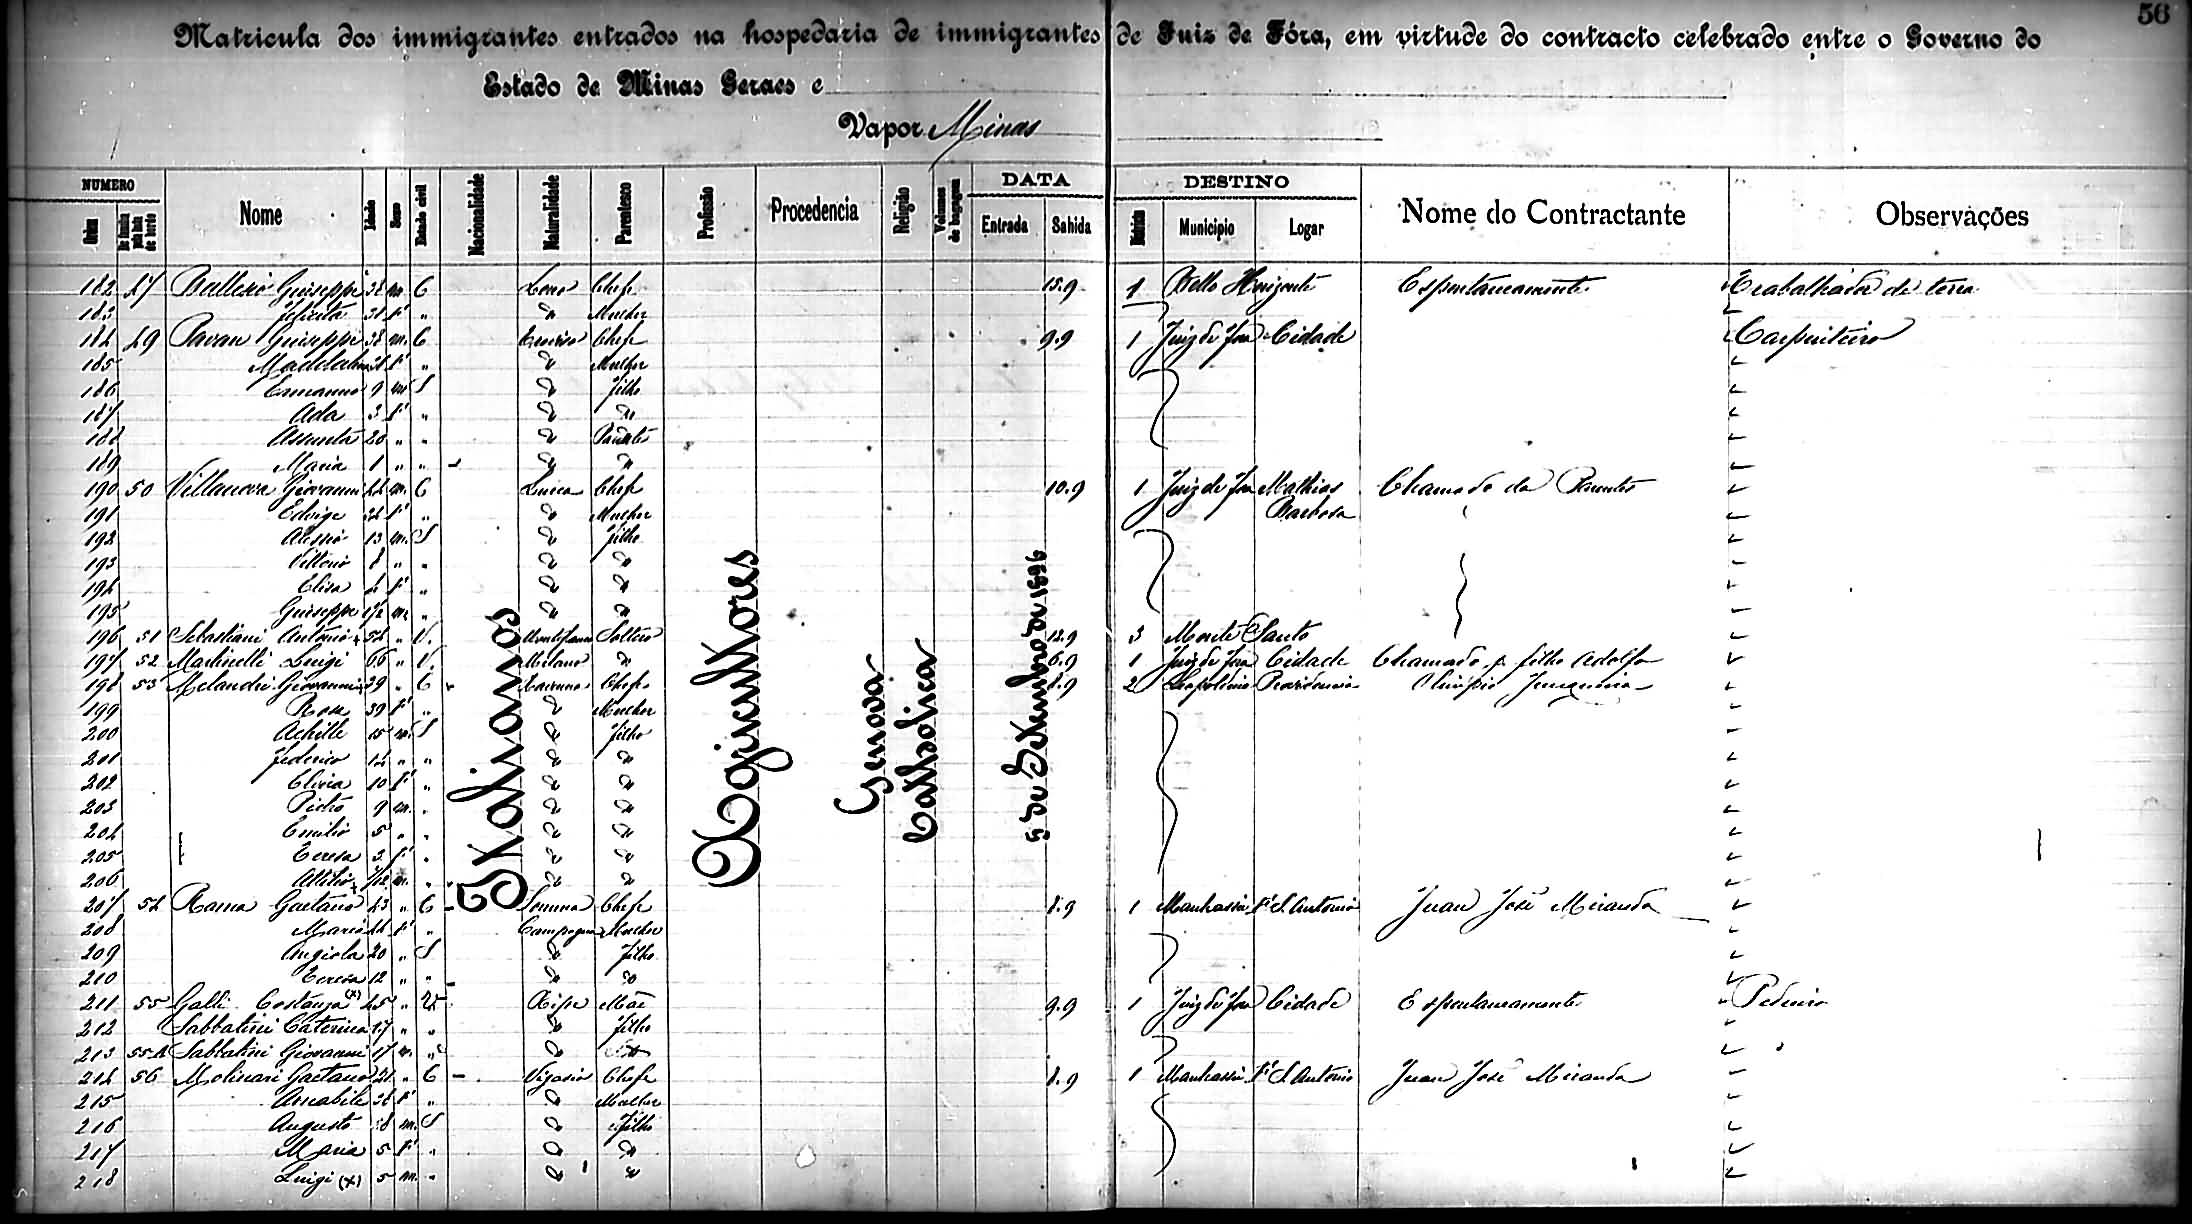 56
Matricula dos immigrantes entrados na hospedaria de immigrantes de Juiz de Fóra, em virtude do contracto celebrado entre o Governo do
Estado de Minas Geraes e
Vapor Minas
NUMERO Nome Idade Sexo Estado civil Nacionalidade Naturalidade Parentesco Profissão Procedencia Religião Volumes de bagagem DATA DESTINO Nome do Contractante Observações
Ordem Entrada Sahida Districto Municipio Logar
Italianos Agricultores Genova Catholica 5 de Setembro de 1896
182 Giuseppe m C Chefe 15.9 1 Bello Horizonte Espontaneamente Trabalhador de terra
183 f " Mulher
184 49 Pavan Giuseppe 38 m C Treviso Chefe 9.9 1 Juiz de Fora Cidade Carpinteiro
185 Maddalena f " Mulher
186 Ermanno 9 m S Filho
187 Ada 3 f "
188 Assunta 20 " " Parente
189 Maria 1 " "
190 50 Villanova Giovanni 44 m. C Lucca Chefe 10.9 1 Juiz de Fora Mathias Barbosa Chamado de Parentes
191 Edvige f " Mulher
192 Alessio 13 m. S Filho
193 Vittorio 8 " "
194 Elisa 4 f "
195 Giuseppe m "
196 51 Sebastiani Antonio 54 " V. Solteiro 12.9 3 Monte Santo
197 52 Martinelli Luigi 66 " V. Milano 6.9 1 Juiz de Fora Cidade Chamado p. filho Adolfo
198 53 Melandri Giovanni 39 " C Chefe 8.9 2 Leopoldina Providencia Olimpio Junqueira
199 Rosa 39 f " Mulher
200 Achille 15 m. S Filho
201 Federico 14 " "
202 Clivia 10 f "
203 Pietro 9 m. "
204 Emilio 5 " "
205 Teresa 3 f "
206 Attilio m. "
207 54 Rama Gaetano 43 " C Somma Chefe 8.9 1 Manhassú F. S. Antonio Juan José Miranda
208 Maria 44 f " Campagna Mulher
209 Angiola 20 " S Filho
210 Teresa 12 " "
211 55 Galli Costanza (x) 45 " Ripe Mãe 9.9 1 Juiz de Fora Cidade Espontaneamente Pedreiro
212 Sabbatini Caterina 17 " " Filho
213 55A Sabbatini Giovanni 17 m. "
214 56 Molinari Gaetano " C Vigasio Chefe 8.9 1 Manhassú F. S. Antonio Juan José Miranda
215 Amabile f " Mulher
216 Augusto 8 m. S Filho
217 Maria 5 f "
218 Luigi (x) 5 m. "